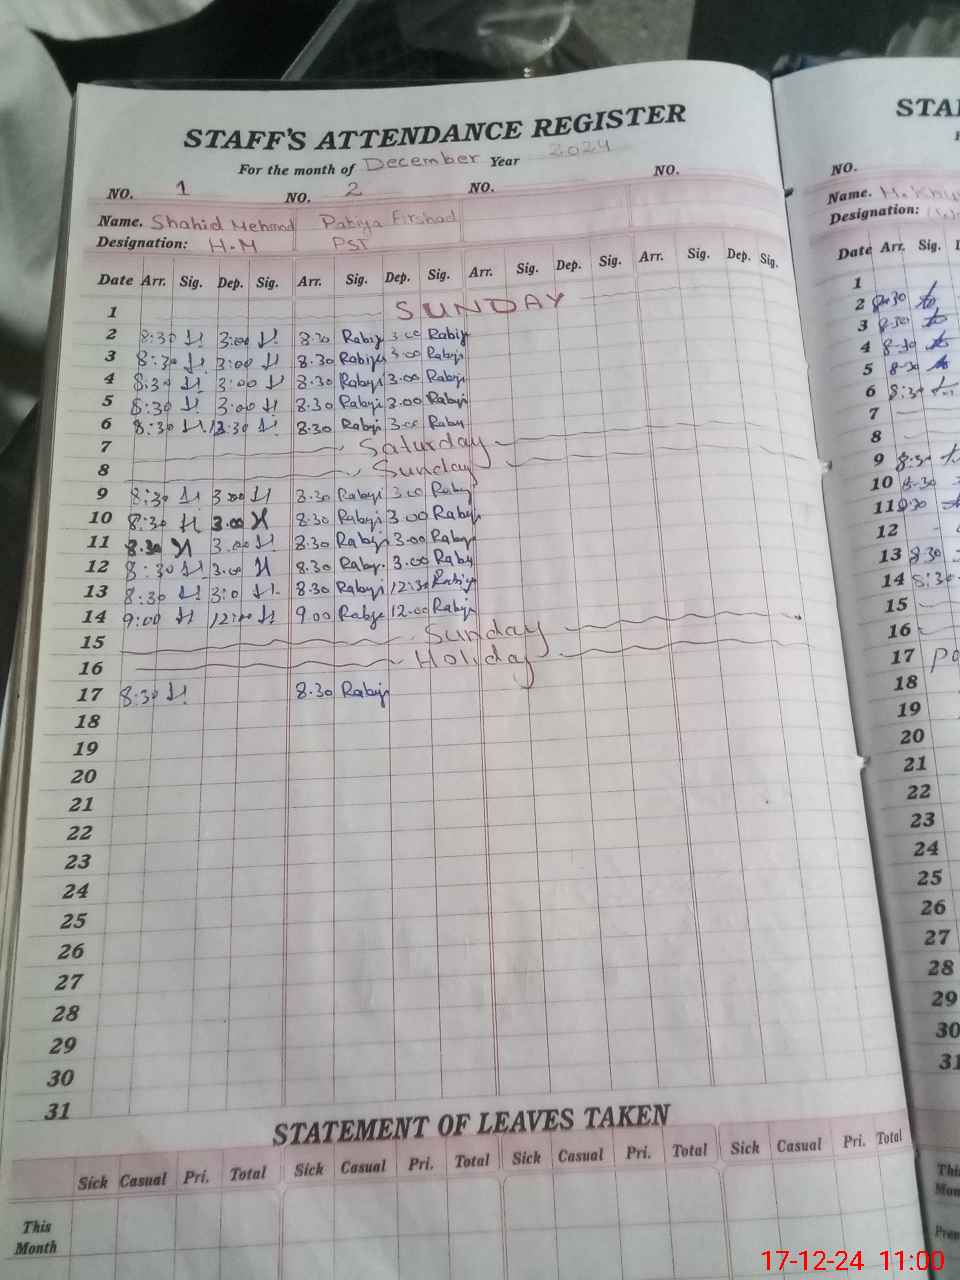 STAFF'S ATTENDANCE REGISTER
For the month of December Year 2024
NO. 1 NO. 2 NO. NO.
Name. Shahid Mehmod Rabiya Firshad
Designation: H.M PST
Date Arr. Sig. Dep. Sig. Arr. Sig. Dep. Sig. Arr. Sig. Dep. Sig. Arr. Sig. Dep. Sig.
1 SUNDAY
2 8:30 3:00 8.30 Rabiy 3.00 Rabiy
3 8:30 3:00 8.30 Rabiy 3.00 Rabyi
4 8:30 3:00 8.30 Rabyi 3.00 Rabyi
5 8:30 3:00 8.30 Rabyi 3.00 Rabyi
6 8:30 12:30 8.30 Rabyi 3.00 Raby
7 Saturday
8 Sunday
9 8:30 3:00 8.30 Rabyi 3.00 Raby
10 8:30 3.00 8.30 Rabyi 3.00 Rabyi
11 8.30 3.00 8.30 Rabyi 3.00 Rabyi
12 8:30 3.00 8.30 Raby. 3.00 Raby
13 8:30 3:0 8.30 Rabyi 12:30 Rabiya
14 9:00 12:00 9.00 Rabye 12.00 Rabiy
15 Sunday
16 Holiday
17 8:30 8.30 Rabiy
18
19
20
21
22
23
24
25
26
27
28
29
30
31
STATEMENT OF LEAVES TAKEN
Sick Casual Pri. Total Sick Casual Pri. Total Sick Casual Pri. Total Sick Casual Pri. Total
This
Month
STA
NO.
Name. H.Khu
Designation:
Date Arr. Sig.
1
2 8:30
3 8:30
4 8-30
5 8-30
6 8:30
7
8
9 8:30
10 8-30
11 8:30
12
13 8:30
14 8:30
15
16
17
18
19
20
21
22
23
24
25
26
27
28
29
30
31
This
Mon
Prev
17-12-24 11:00